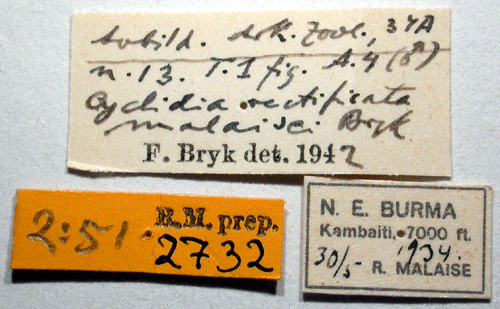 Ark. Zool., 34A
n. 13. T. 1 fig. A. 4 (♂)
Cyclidia rectificata
malaisei Bryk
F. Bryk det. 1942
2:51. R.M. prep.
2732
N. E. BURMA
Kambaiti, 7000 ft.
30/5 1934.
R. MALAISE